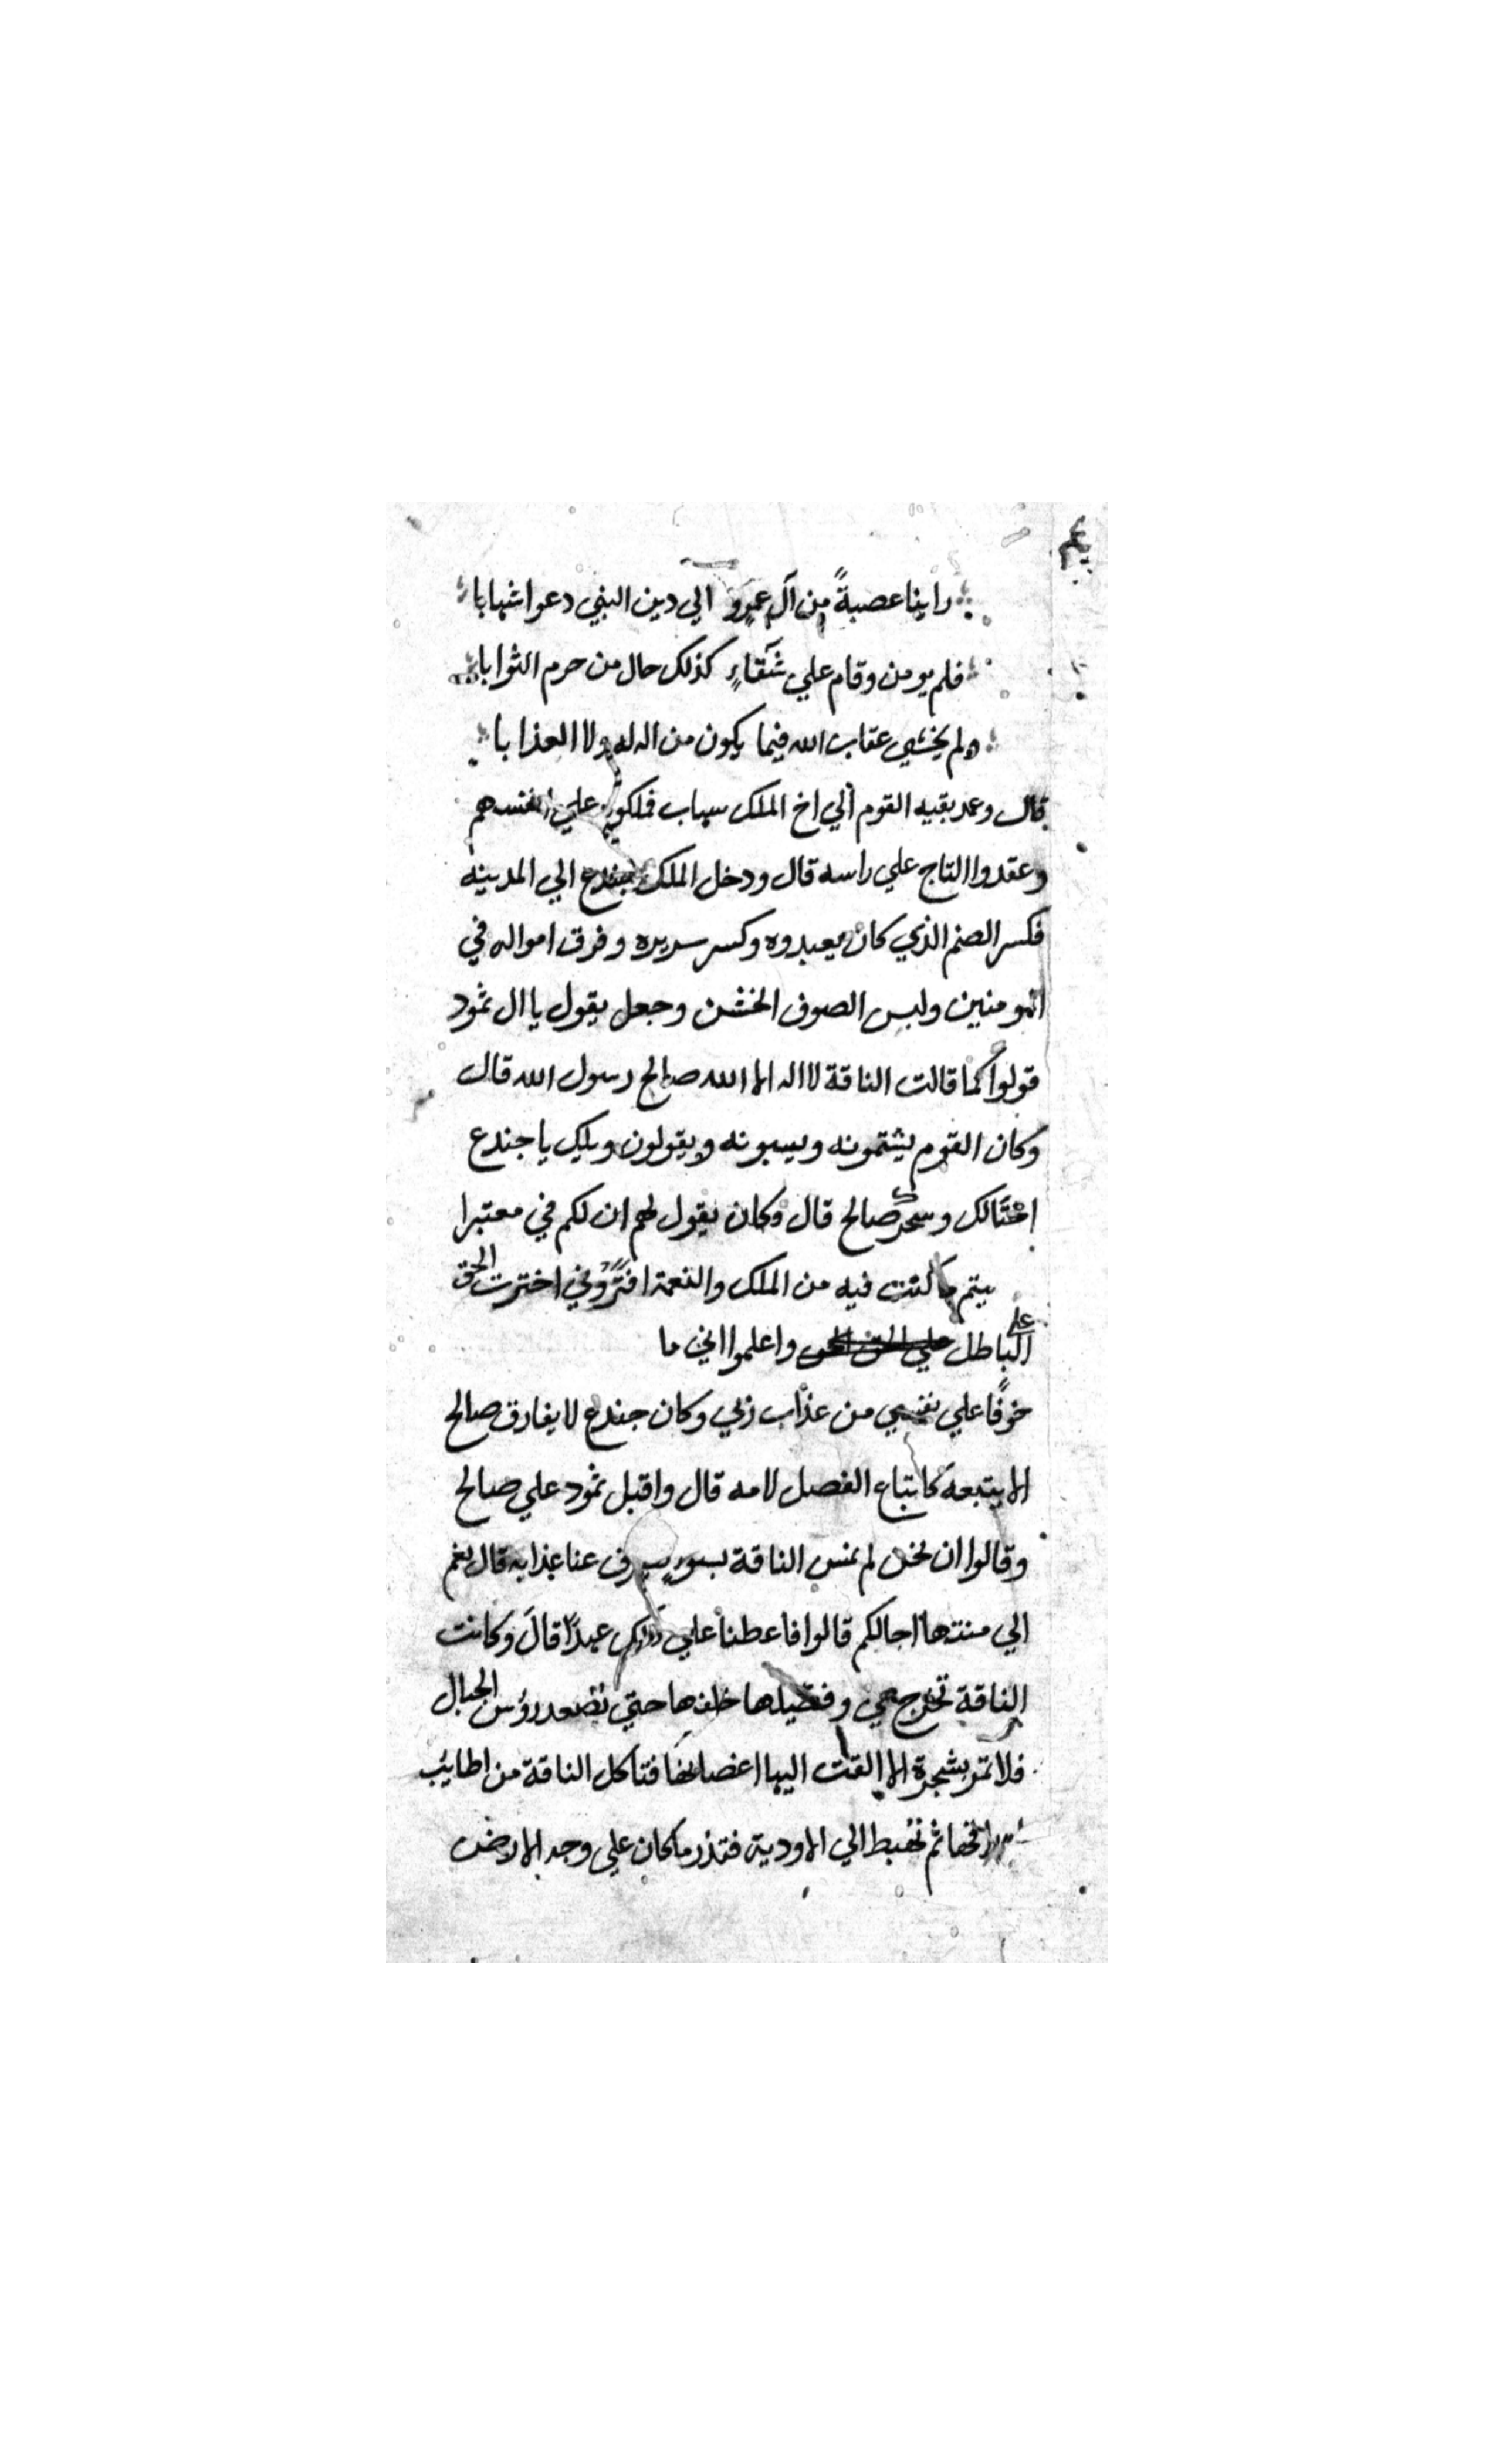 راينا عصبةً من آل عمرو الي دين النبي دعوا شهابا
فلم يومن وقام علي شَقاءٍ كذلك حال من حرم الثوابا
ولم يخشي عقاب الله فيما يكون من اله ولا العذابا
قال وعمد بقيه القوم الي اخ الملك سهاب فملكوه علي انفسهم
وعقدوا التاج علي راسه قال ودخل الملك جندع الي المدينه
فكسر الصنم الذي كان يعبدوه وكسر سريره وفرق امواله في
المومنين ولبس الصوف الخشن وجعل يقول يا ال ثمود
قولوا كما قالت الناقة لا اله الا الله صالح رسول الله قال
وكان القوم يشتمونه ويسبونه ويقولون ويلك يا جندع
احتَالك وسحرك صالح قال وكان يقول لهم ان لكم في معتبرا
يتم ما كنت فيه من الملك والنعمة افترَوني اخترت الحق
على الباطل واعلموا اني ما
خوفًا علي نفسي من عذاب ربي وكان جندع لا يفارق صالح
الا يتبعه كاتباع الفصل لامه قال واقبل ثمود علي صالح
وقالوا ان نحن لم نمس الناقة بسوء عنا عذابه قال نعم
الي منتها اجالكم قالوا فاعطنا علي عهدًا قالَ وكانت
الناقة تخرج هي وفصيلها خلفها حتي تصعد رؤس الجبال
فلا تمر بشجرة الا القت اليها اغصانها فتاكل الناقة من اطايب
ثم تهبط الي الاودية فتذر ما كان علي وجه الارض